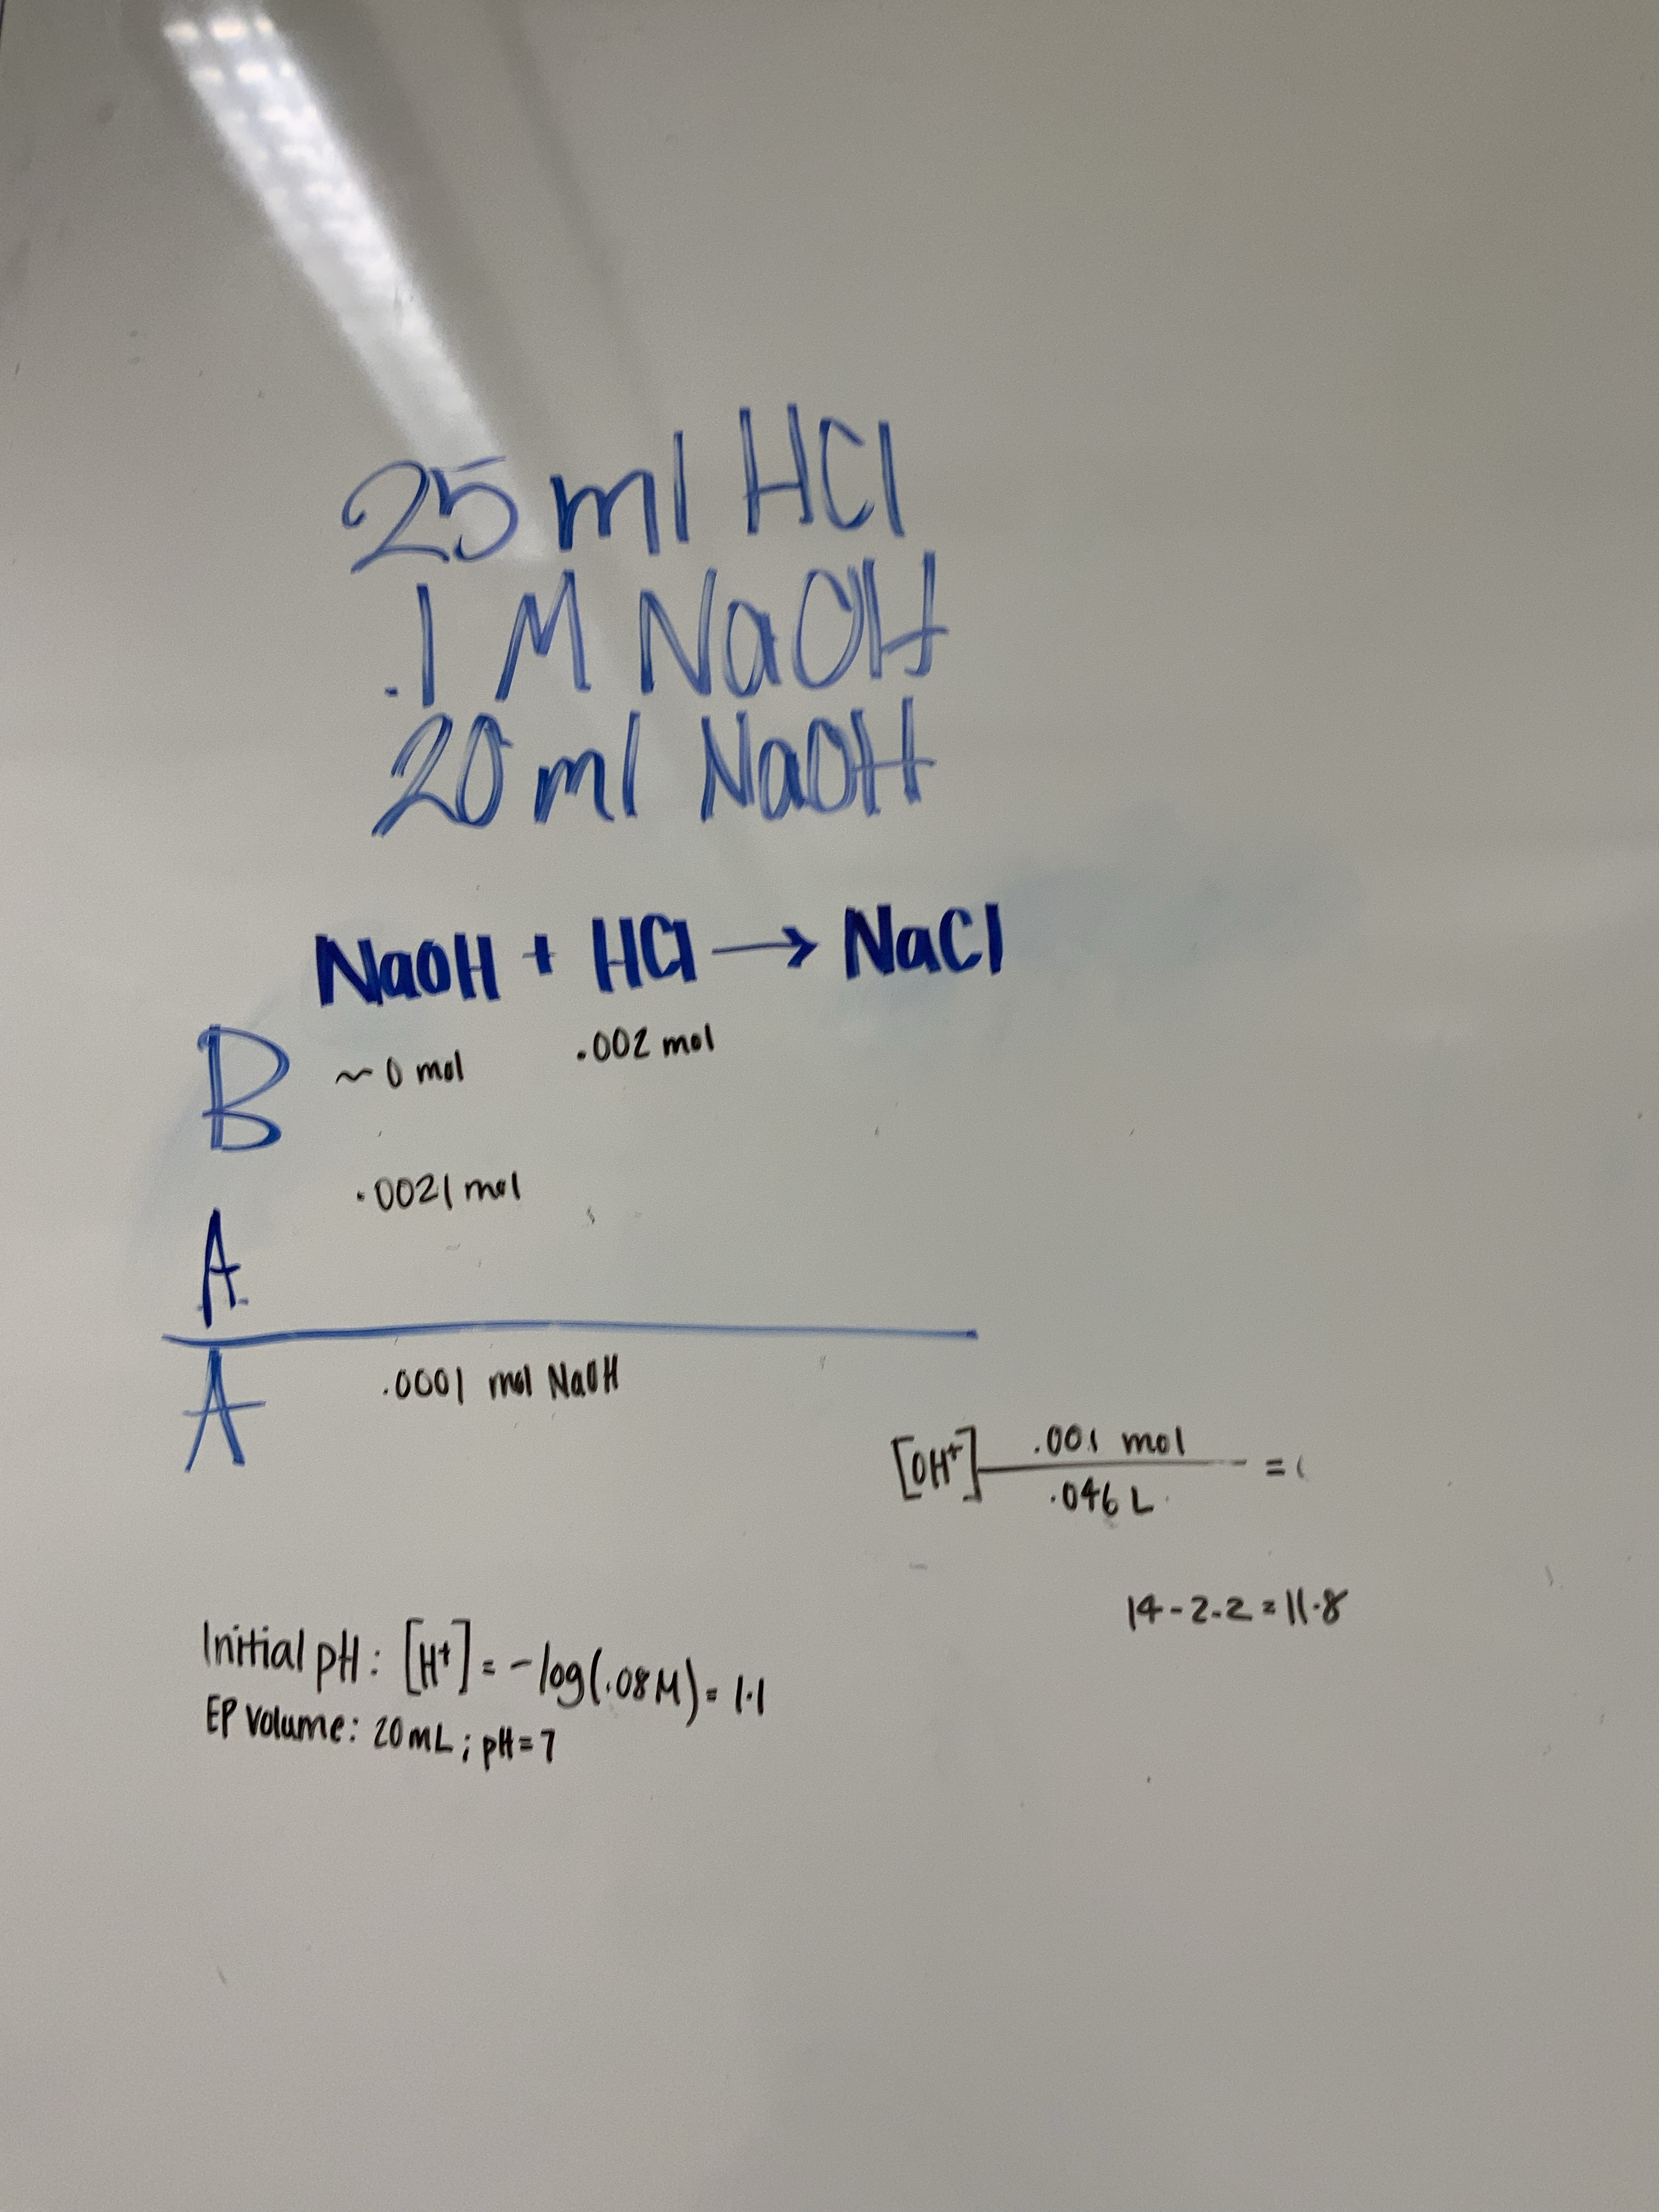 25 ml HCl
.1 M NaOH
20 ml NaOH
NaOH + HCl → NaCl
B ~0 mol .002 mol
.0021 mol
A
A .0001 mol NaOH
[OH+] .001 mol
.046 L =
14-2.2=11.8
Initial pH: [H+] = -log(.08M) = 1.1
EP Volume: 20mL; pH=7